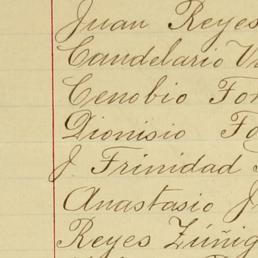 Juan Reyes
Candelario
Cenobio
Dionisio
J. Trinidad
Anastasio
Reyes Zúñig